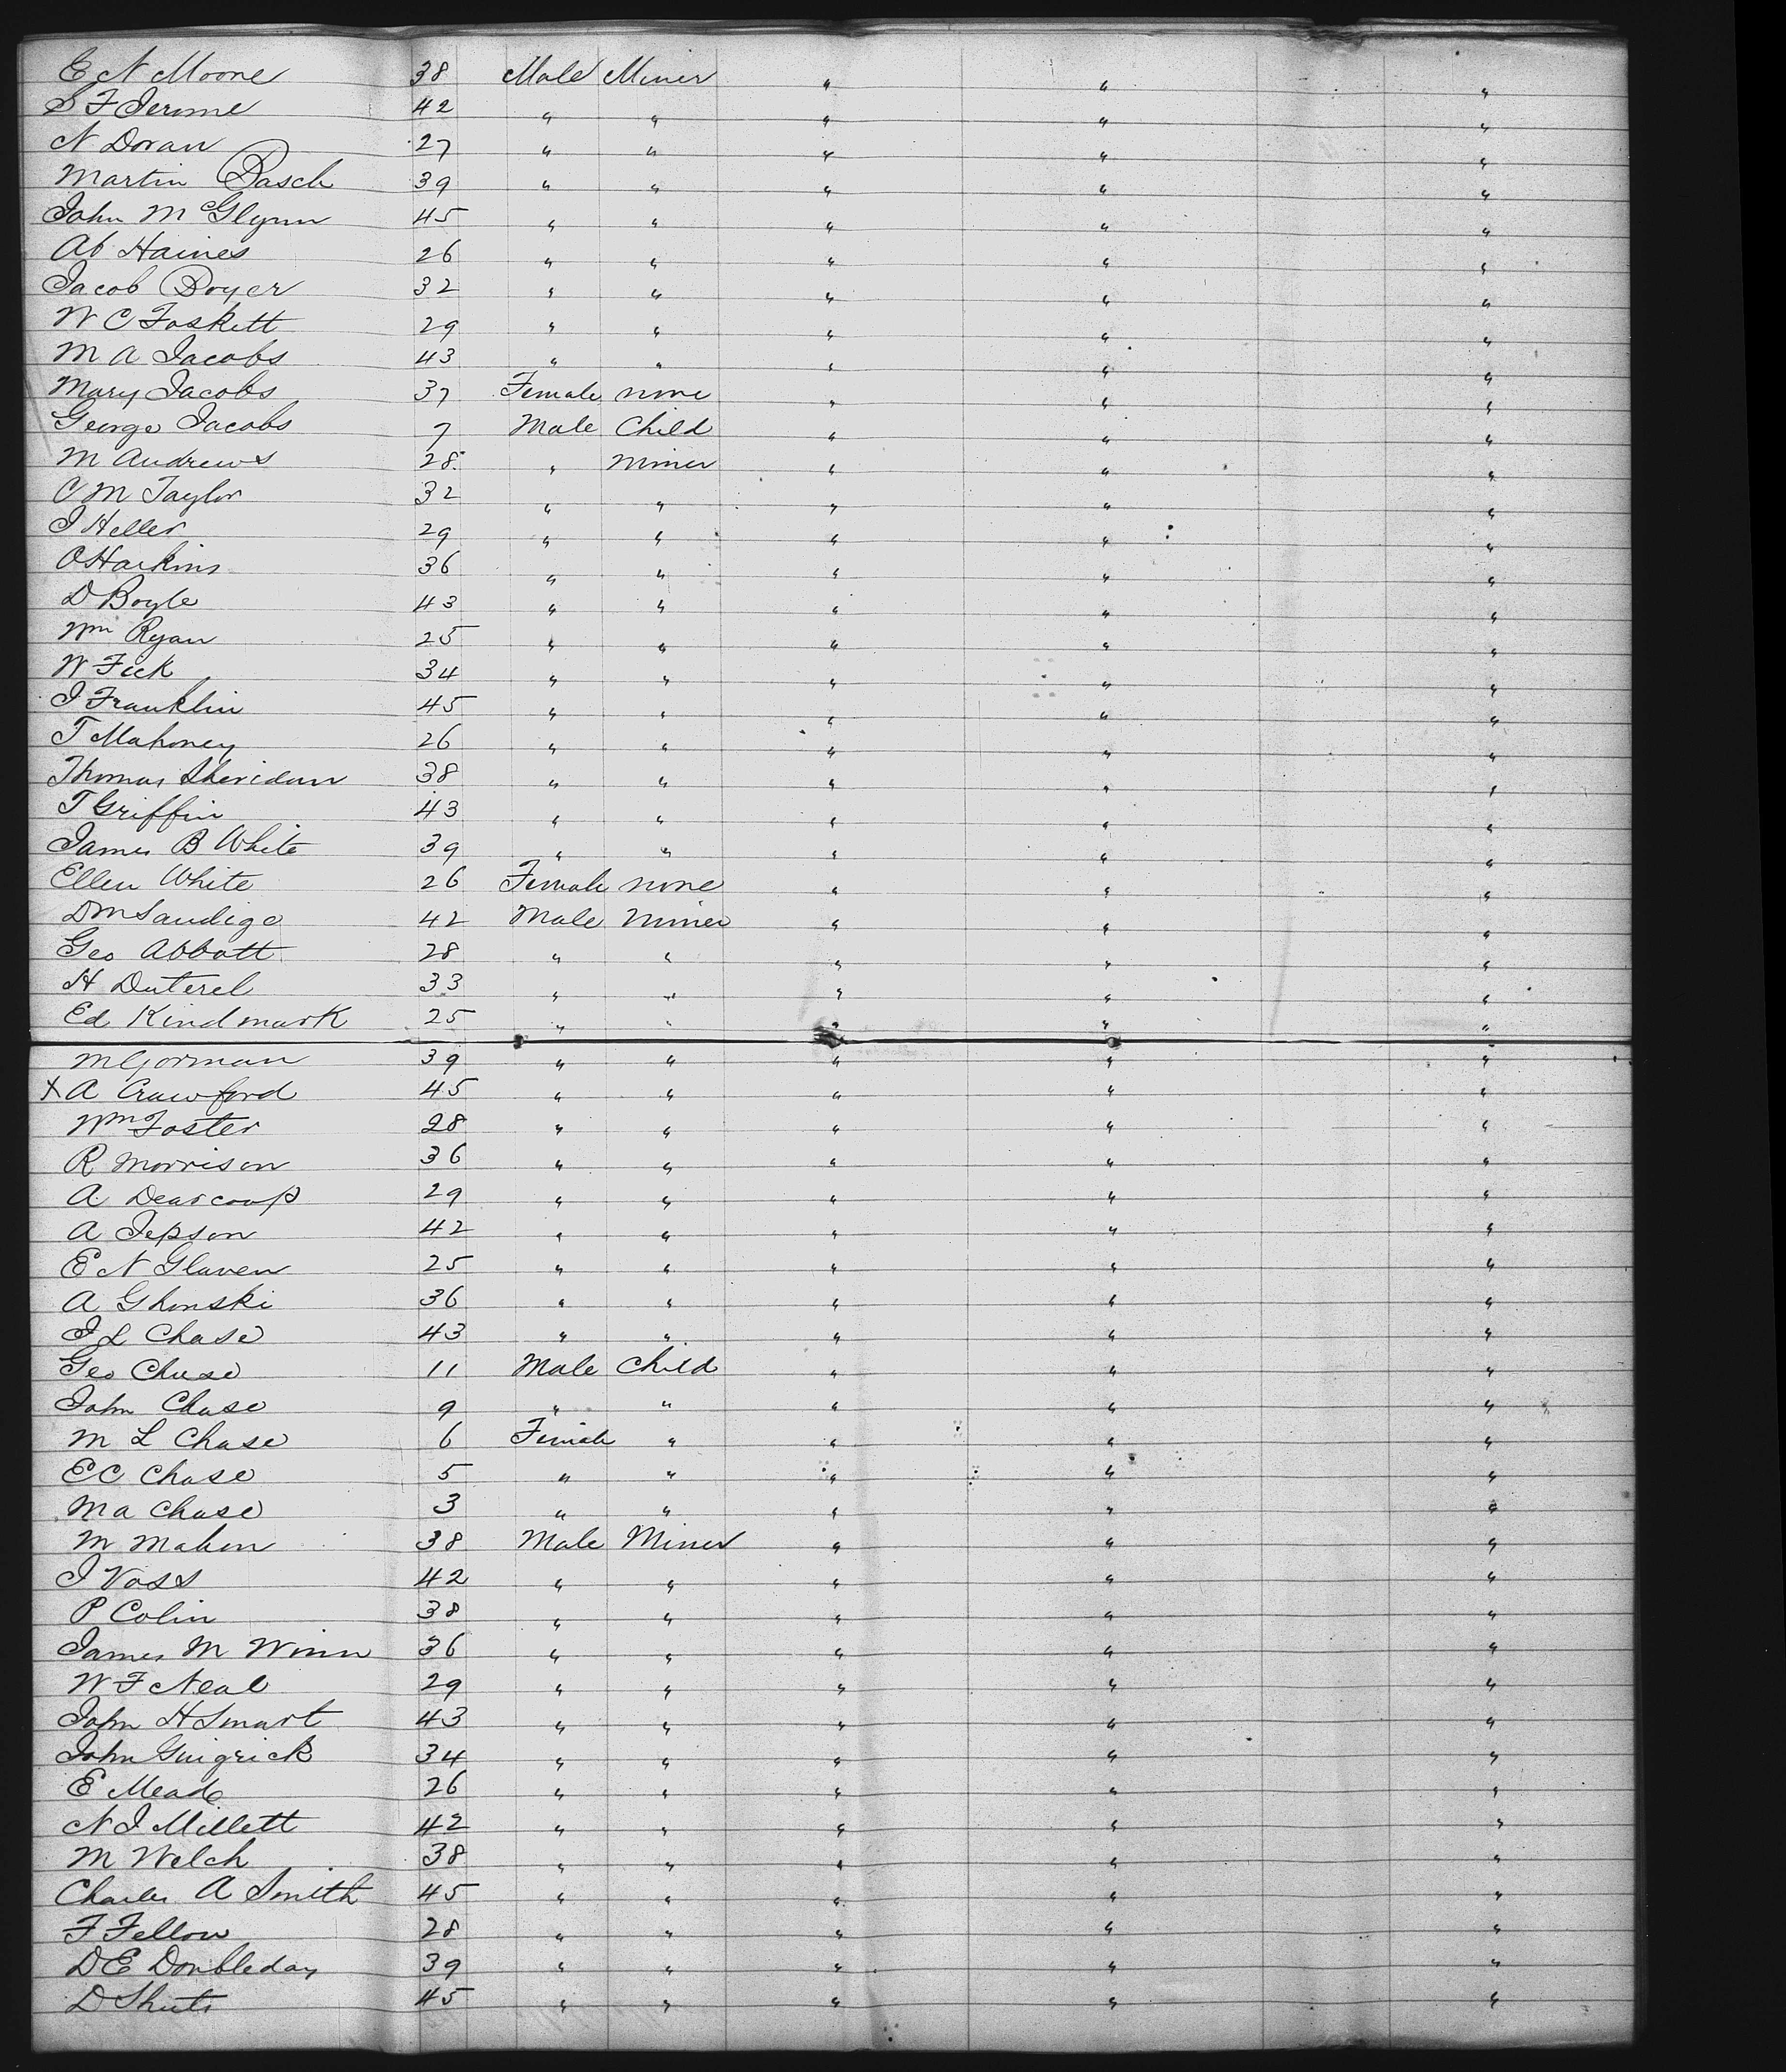 E N Moore 38 Male Miner " " "
S F Jerome 42 " " " " "
N Doran 27 " " " " "
Martin Basch 39 " " " " "
John McGlynn 45 " " " " "
Ab Haines 26 " " " " "
Jacob Boyer 32 " " " " "
W C Foskett 29 " " " " "
M A Jacobs 43 " " " " "
Mary Jacobs 37 Female none " " "
George Jacobs 7 Male Child " " "
M Andrews 28 " Miner " " "
C M Taylor 32 " " " " "
J Heller 29 " " " " "
O Harkins 36 " " " " "
D Boyle 43 " " " " "
Wm Ryan 25 " " " " "
W Fick 34 " " " " "
J Franklin 45 " " " " "
T Mahoney 26 " " " " "
Thomas Sheridan 38 " " " " "
T Griffin 43 " " " " "
James B White 39 " " " " "
Ellen White 26 Female none " " "
D M Sandige 42 Male Miner " " "
Geo Abbott 28 " " " " "
H Duterel 33 " " " " "
Ed Kindmark 25 " " " " "
M Gorman 39 " " " " "
X A Crawford 45 " " " " "
Wm Foster 28 " " " " "
R Morrison 36 " " " " "
A Dearcoop 29 " " " " "
A Jepson 42 " " " " "
E N Glaven 25 " " " " "
A Ghonski 36 " " " " "
J L Chase 43 " " " " "
Geo Chase 11 Male Child " " "
John Chase 9 " " " " "
M L Chase 6 Female " " " "
E C Chase 5 " " " " "
M A Chase 3 " " " " "
M Mahon 38 Male Miner " " "
J Voss 42 " " " " "
P Colin 38 " " " " "
James M Winn 36 " " " " "
W F Neal 29 " " " " "
John H Smart 43 " " " " "
John Guigrick 34 " " " " "
E Meade 26 " " " " "
N J Millett 42 " " " " "
M Welch 38 " " " " "
Charles A Smith 45 " " " " "
F Fellow 28 " " " " "
D E Doubleday 39 " " " " "
D Shuts 45 " " " " "